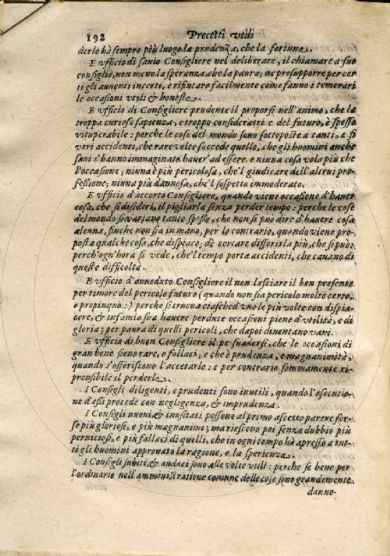 192 Precetti utili
derlo hà sempre più luogo la prudenza, che la fortuna.
E ufficio di sauio Consigliere nel deliberare, il chiamare a suo
consiglio, non meno la speranza, che la paura; ne presupporre per cer
ti gli auenti incerti, e rifiutare facilmente come fanno i temerari
le occasioni utili & honeste.
E ufficio di Consigliere prudente il proporsi nell'animo, che la
troppa curiosa sapienza, e troppo consideratrice del futuro, è spesso
vituperabile: perche le cose del mondo sono sottoposte a tanti, a sì
vari accidenti, che rare volte succede quello, che gli huomini anche
saui s'hanno immaginato hauer' ad essere. e niuna cosa vola più che
l'occasione; niuna è più pericolosa, che'l giudicare dell'altrui pro-
fessione; niuna più dannosa, che'l sospetto immoderato.
E ufficio d'accorto Consigliere, quando viene occasione d'hauer
cosa, che si desideri, il pigliarla senza perder tempo: perche le cose
del mondo si variano tanto spesso, che non si può dire d'hauere cosa
alcuna, finche non sia in mano, per lo contrario, quando viene pro-
posta qualche cosa, che dispiace, dè cercare differirla più, che si può:
perch'ogn'hora si vede, che'l tempo porta accidenti, che cauano di
queste difficoltà.
E ufficio d'aueduto Consigliere il non lasciare il ben presente
per timore del pericolo futuro (quando non sia pericolo molto certo,
e propinquo:) perche si troua ciascheduno le più volte con dispia-
cere, & infamia sua hauere perdute occasioni piene d'utilità, e di
gloria; per paura di quelli pericoli, che dapoi diuentano vani.
E ufficio di buon Consigliere il persuadersi, che le occasioni di
gran bene sien rare, e fallaci, e che è prudenza, e magnanimità,
quando s'offeriscono l'accettarle: e per contrario sommamente ri-
prensibile il perderle.
I Consigli diligenti, e prudenti sono inutili, quando l'esecutio-
ne d'essi procede con negligenza, & imprudenza.
I Consigli nuoui, & inusitati possono al primo aspetto parere for-
se più gloriosi, e più magnanimi; ma riescono poi senza dubbio più
perniciosi, e più fallaci di quelli, che in ogni tempo hà apresso a tut-
ti gli huomini approuato la ragione, e la sperienza.
I Consigli subiti, & audaci sono alle volte utili: perche se bene per
l'ordinario nell'amministratione comune delle cose sono grandemente
danno-